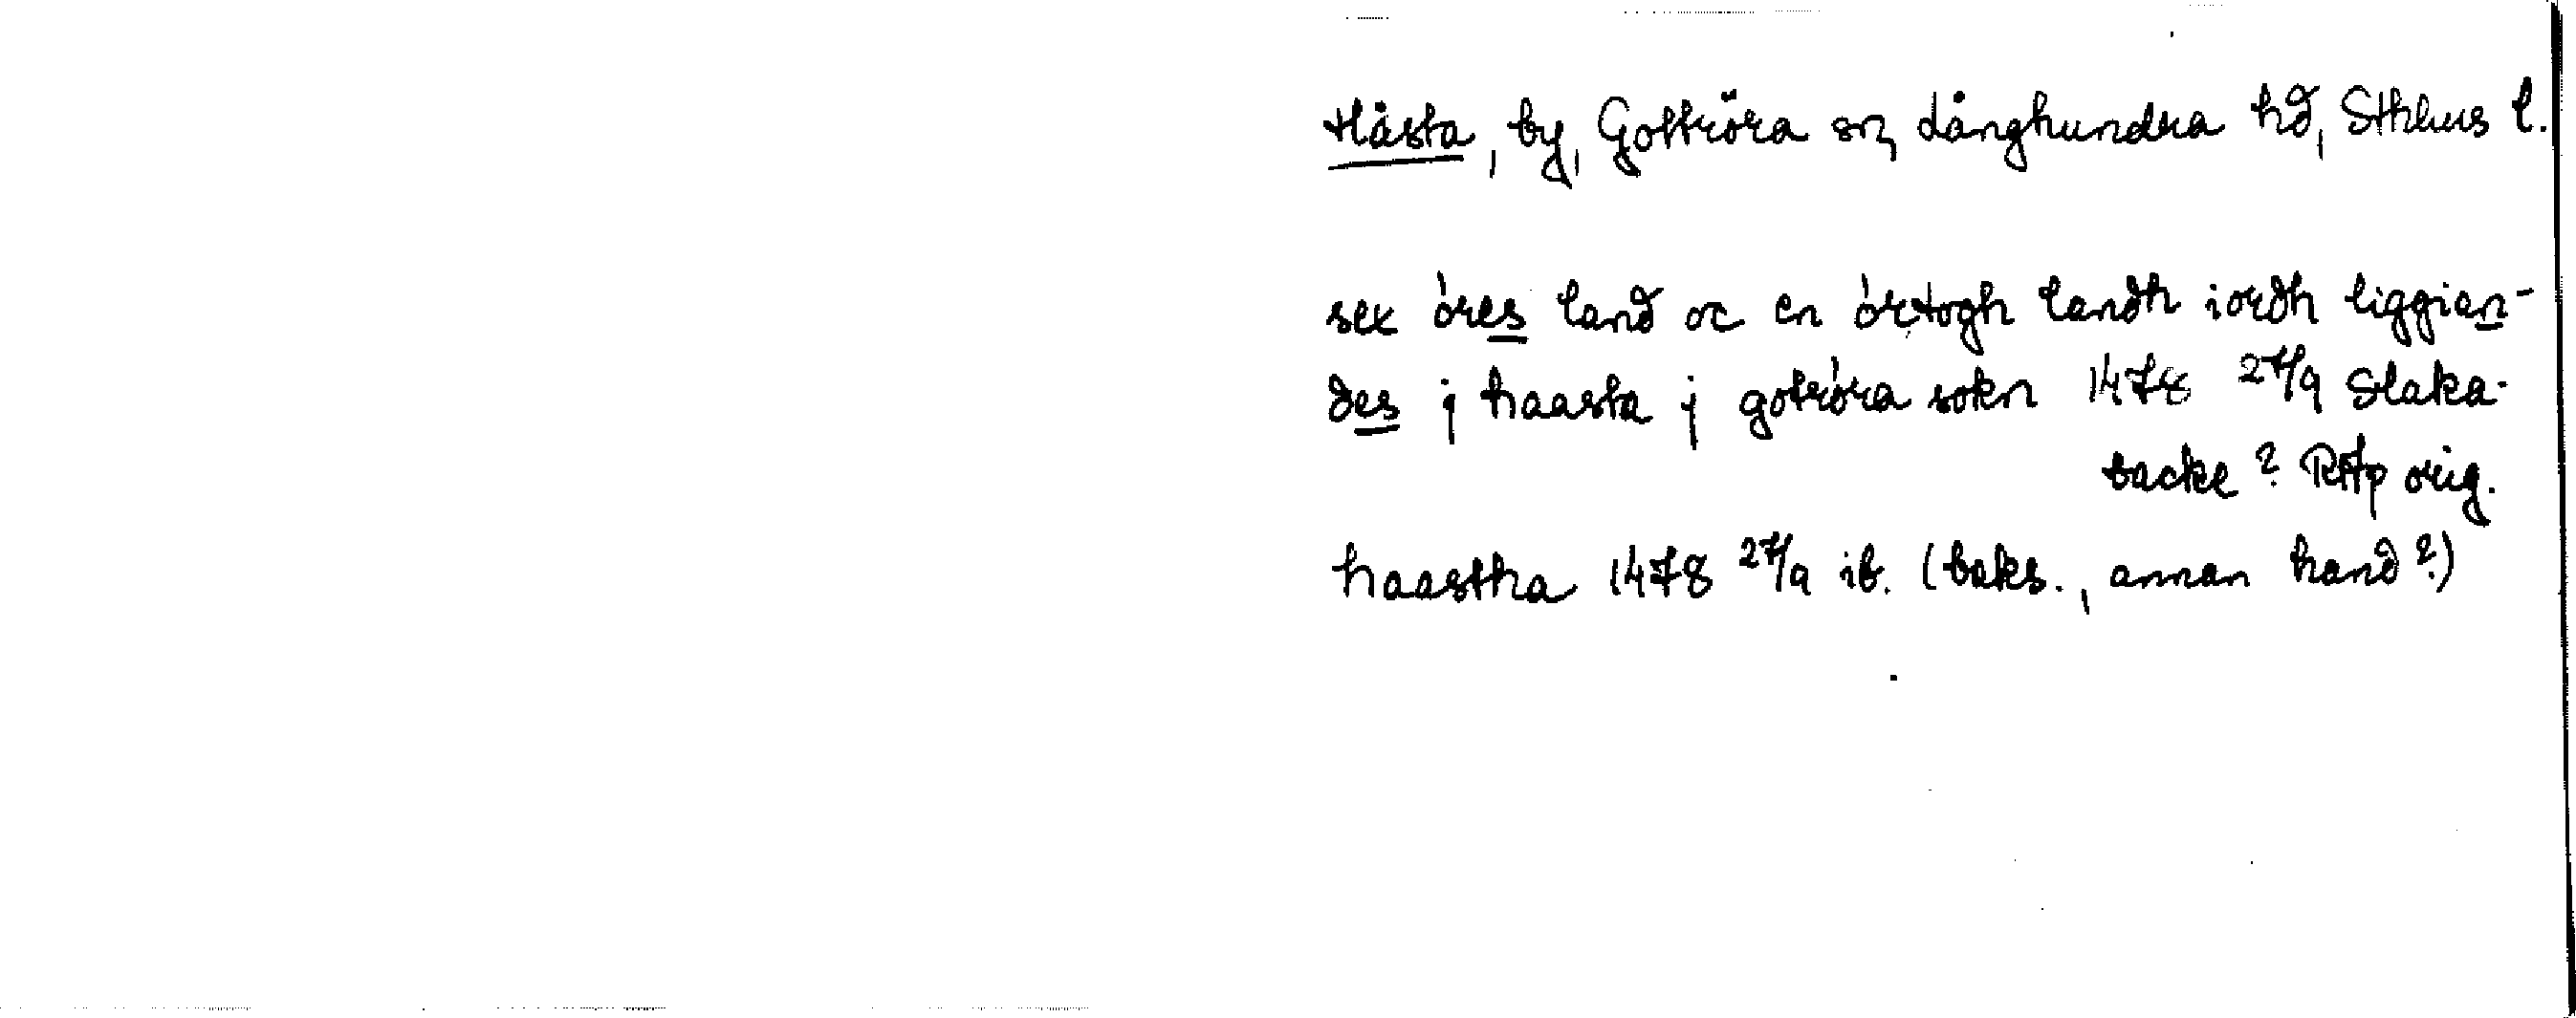 Håsta, by, Gottröra sn, Långhundra hd, Sthlms l.
sex óres land oc en órtogh landh iordh liggian-
des j haasta j gotróra sokn 1478 27/9 Slaka-
backe? RAp orig.
haastha 1478 27/9 ib. (baks., annan hand?)